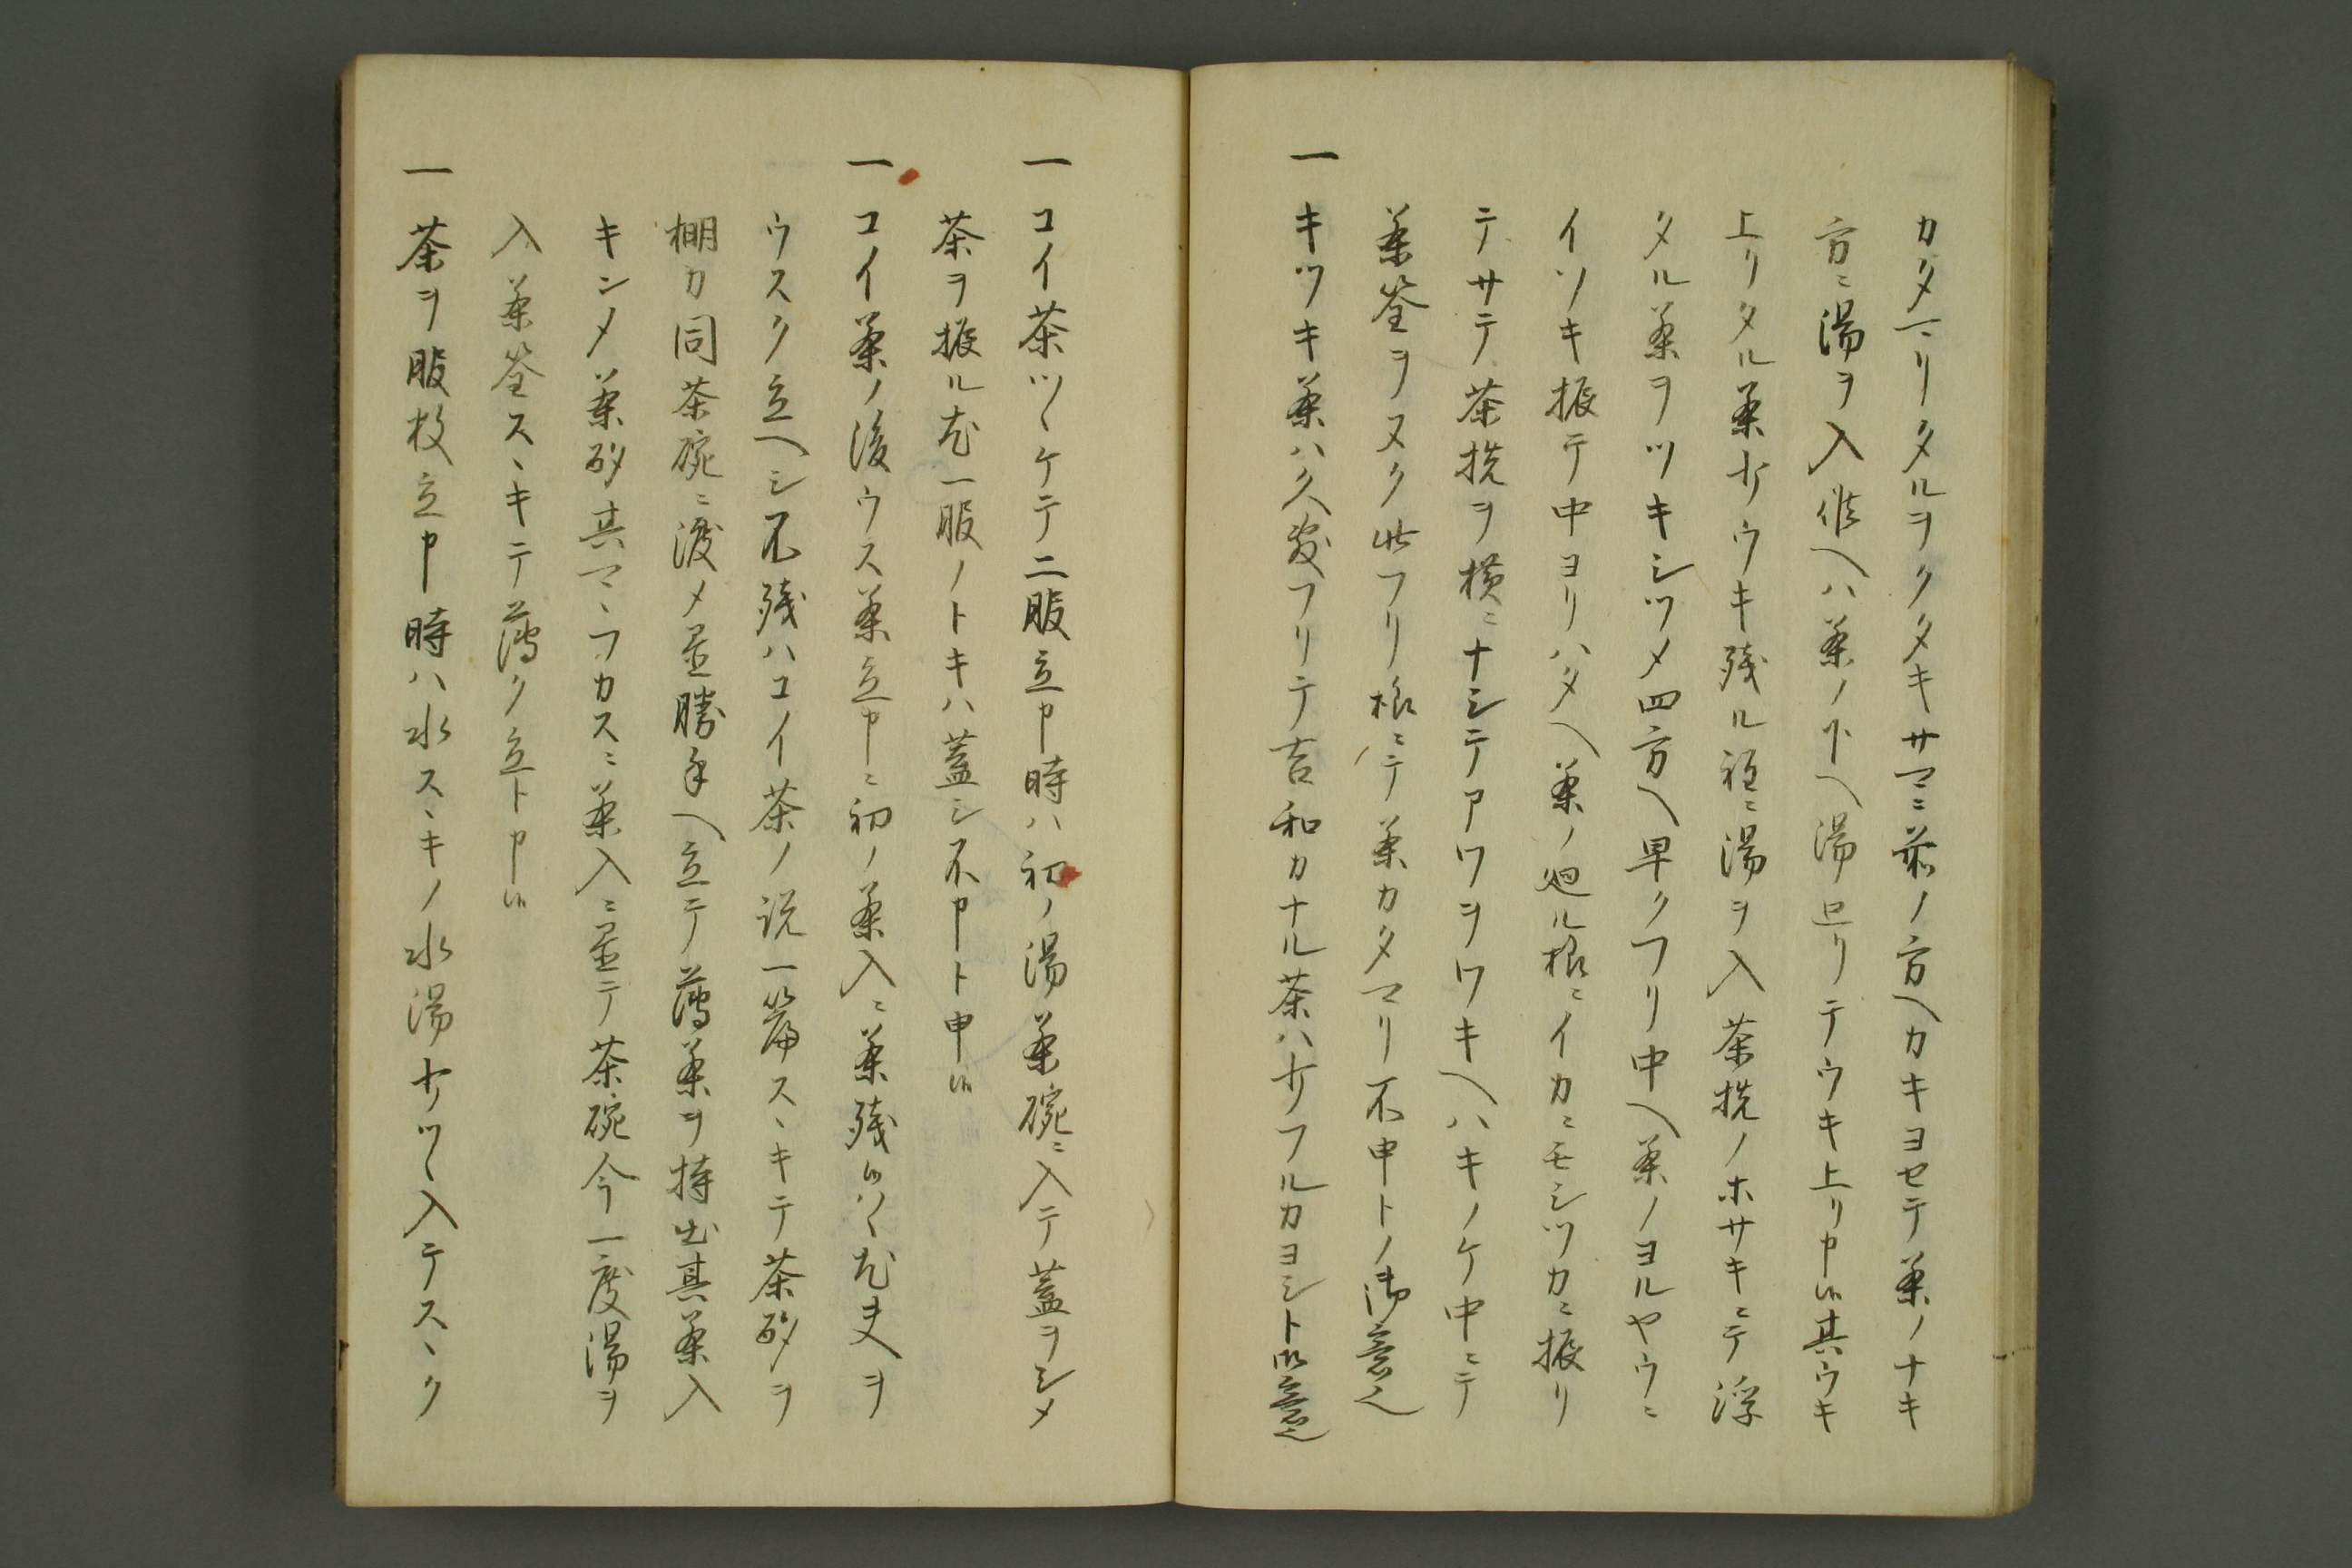 カタマリタルヲクタキサマニ前ノ方ヘカキヨセテ茶ノナキ
方ニ湯ヲ入候ヘハ茶ノ下ヘ湯廻リテウキ上リ申候其ウキ
上リタル茶サウキ残ル程ニ湯ヲ入茶筅ノホサキニテ浮
タル茶ヲツキシツメ四方ヘ早クフリ中ヘ茶ノヨルヤウニ
イソキ振テ中ヨリハタヘ茶ノ廻ル様ニイカニモシツカニ振リ
テサテ茶筅ヲ横ニナシテアワヲワキヘハキノケ中ニテ
茶筌ヲヌク此フリ様ニテ茶カタマリ不申トノ御意也
一キツキ茶ハ久敷フリテ吉和カナル茶ハサフルカヨシト御意也
一コイ茶ツヽケテ二服立申時ハ初ノ湯茶碗ニ入テ蓋ヲシメ
茶ヲ振ル尤一服ノトキハ蓋シ不申ト申候
一コイ茶ノ後ウス茶立申ニ初ノ茶入ニ茶残候ハヽ尤夫ヲ
ウスク立ヘシ不残ハコイ茶ノ説一篇スヽキテ茶碗ヲ
棚カ同茶碗ニ渡メ置勝手ヘ立テ薄茶ヲ持出其茶入
キンメ茶碗其マヽフカスニ茶入ニ置テ茶碗今一度湯ヲ
入茶筌スヽキテ薄ク立ト申候
一茶ヲ服枚立申時ハ水スヽキノ水湯サツヽ入テスヽク